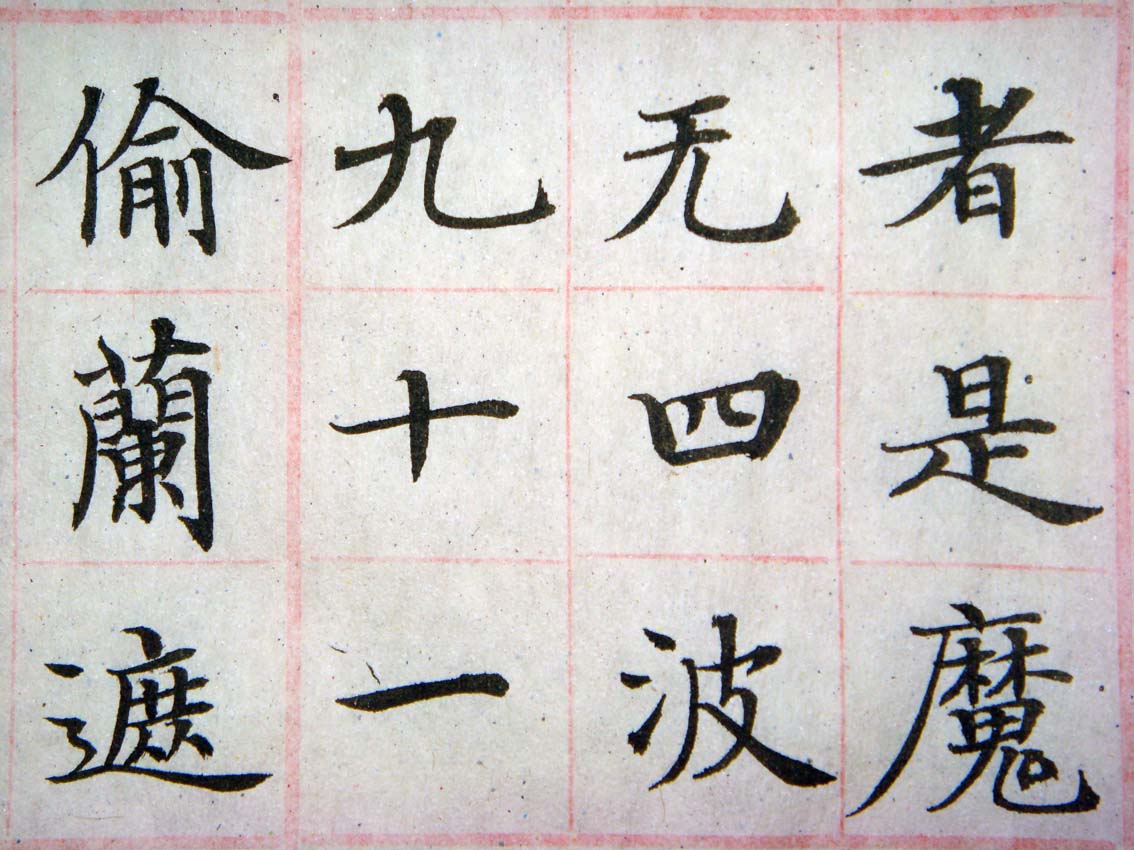 者是魔
无四波
九十一
偷蘭遮